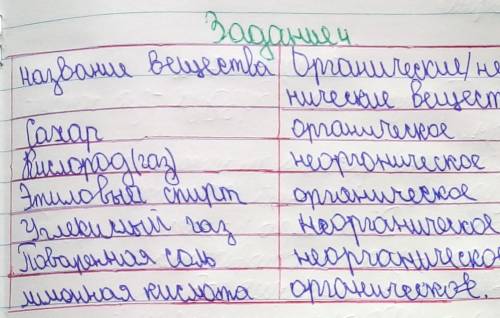 Задание 4
название вещества Органические/не
нические вещест
Сахар органическое
Кислород (газ) неорганическое
Этиловый спирт органическое
Углекислый газ неорганическое
Поваренная соль неорганическое
лимонная кислота органическое.